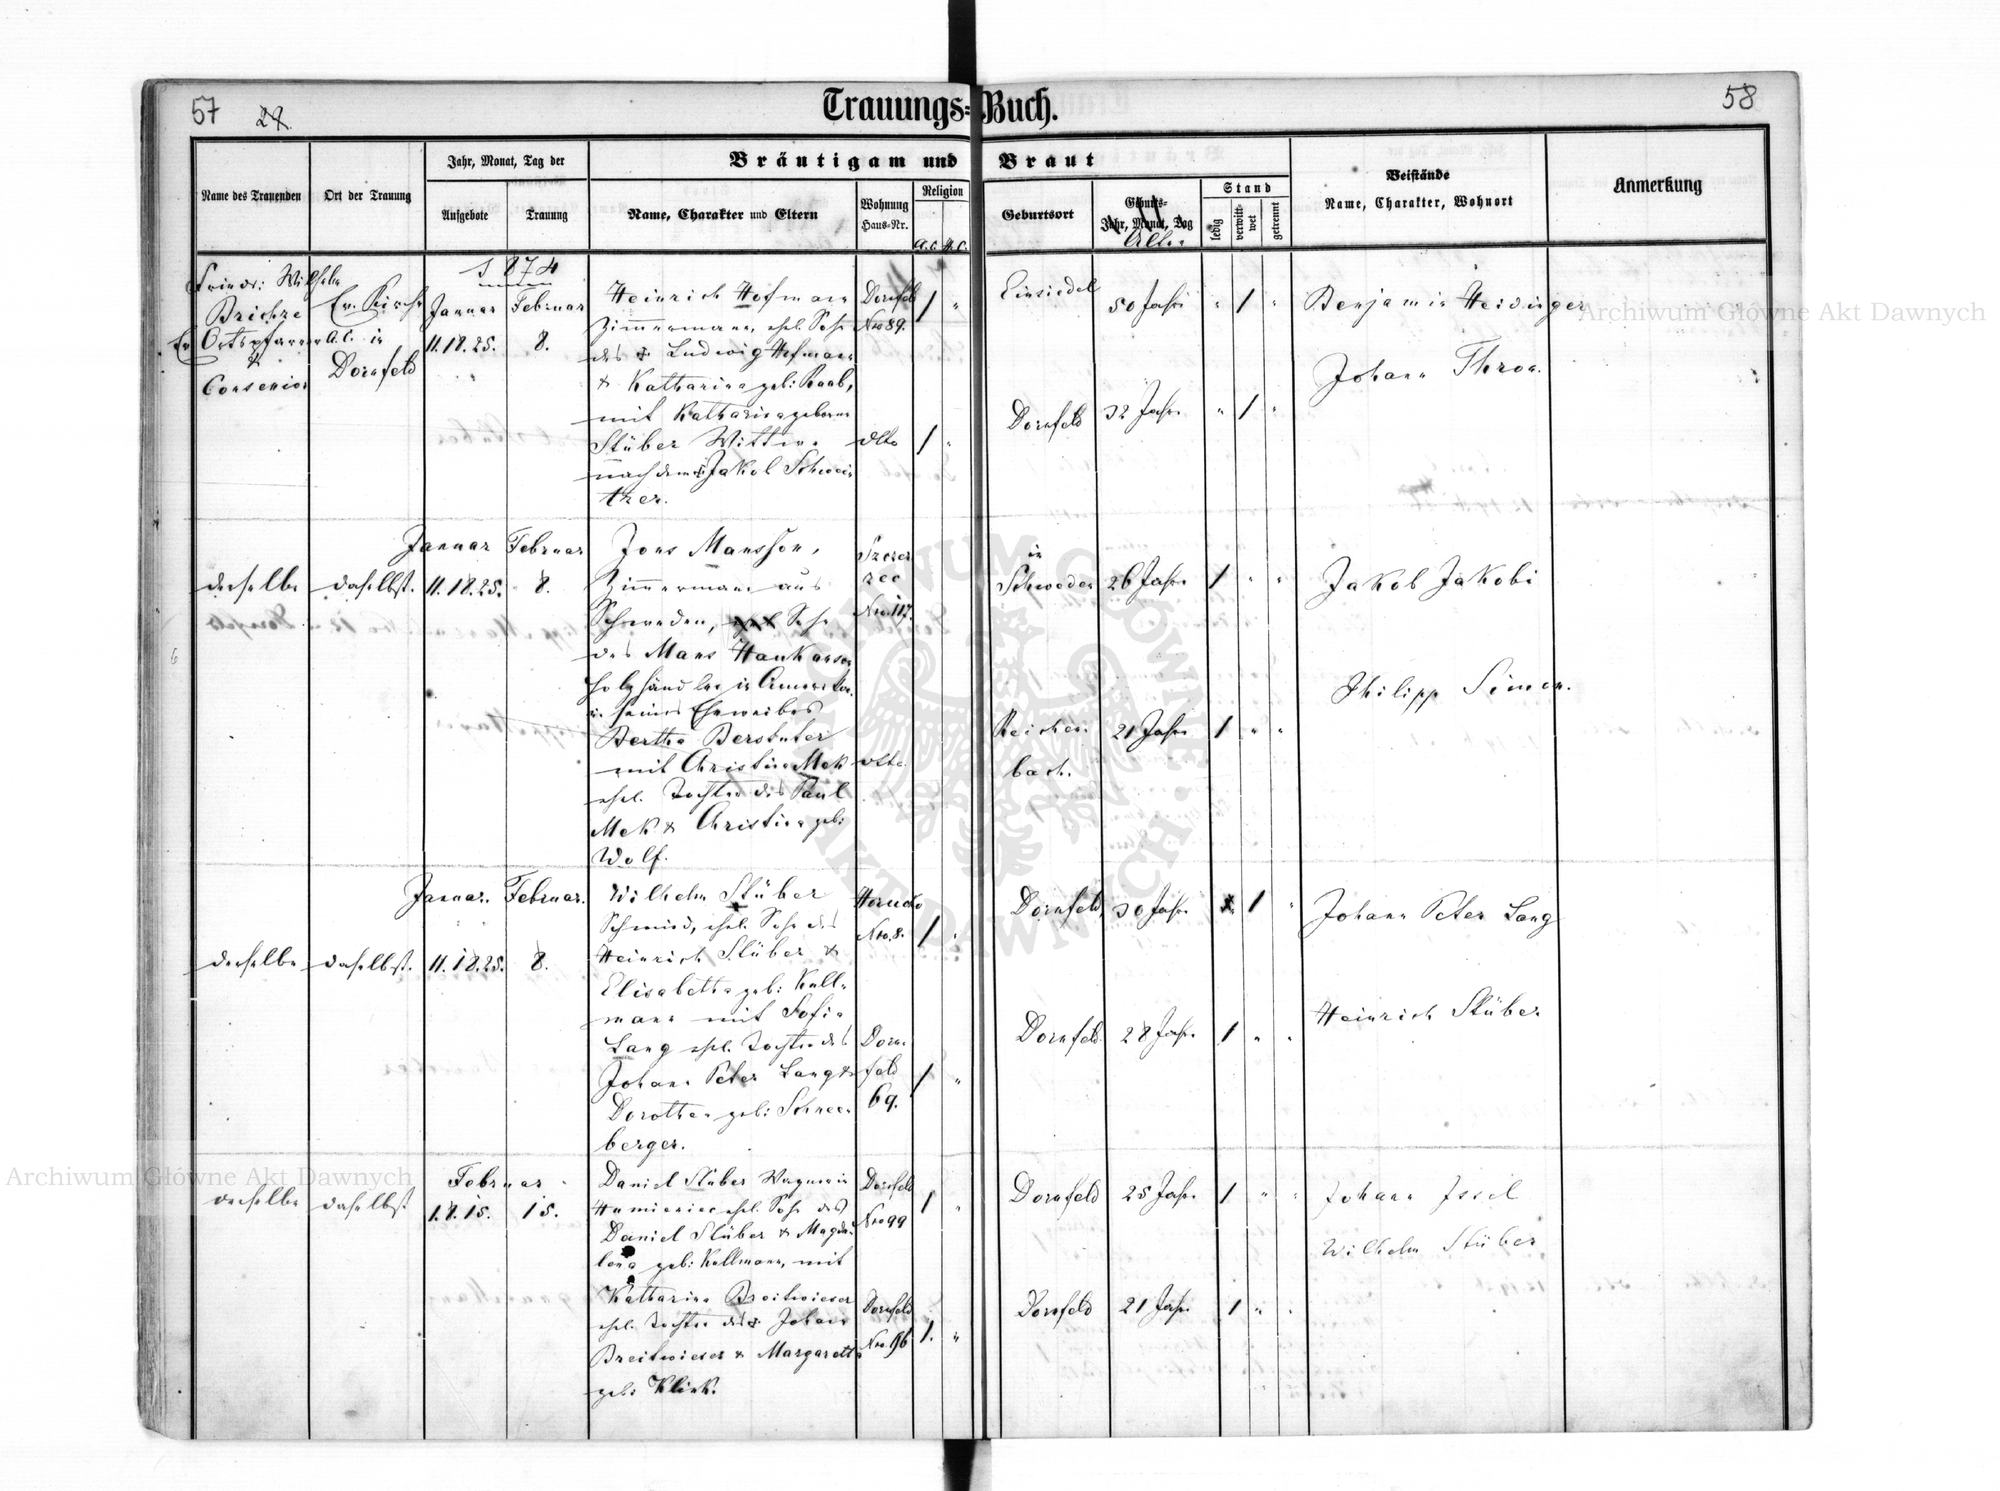 57
Trauungs=Buch.
58
Name des Trauenden
Ort der Trauung
Jahr, Monat, Tag der
Aufgebote
Trauung
Bräutigam und Braut
Name, Charakter und Eltern
Wohnung
Haus=Nr.
Religion
A.C.
H.C.
Geburtsort
Geburts=
Jahr, Monat, Tag
Alter
Stand
ledig
verwitt=
wet
getrennt
Beistände
Name, Charakter, Wohnort
Anmerkung
1874
Friedr: Wilhelm
Ev. Ortspfarrer
&
Consenior
Ev. Kirche
A.C. in
Dornfeld
Januar
11. 18. 25.
Februar
8.
Heinrich Hofmann
Zimmermann, ehel. Sohn
des Ludwig Hofmann
& Katharina geb: Raab,
mit Katharina geborne
Stüber Wittwe
nach dem Jakob Schwei
tzer.
Dornfeld
Nro 89.
1 "
dtto
1 "
Einsiedel
50 Jahre
" 1 "
Dornfeld
32 Jahre
" 1 "
Benjamin Heidinger
Johann
derselbe
daselbst.
Januar
11. 18. 25.
Februar
8.
Jons Mansson,
Zimmermann aus
Schweden, Sohn
des Mans Haukanson
Holzhändler in Amerika
u. seines Eheweibes
Bertha
mit Christina Mek
ehel. Tochter des Paul
Mek & Christina geb:
Wolf.
Szczer
zec
Nro. 117.
dtto
in
Schweden
26 Jahre
1 " "
Reichen
bach.
21 Jahre
1 " "
Jakob Jakobi
Philipp Simon.
derselbe
daselbst.
Januar.
11. 18. 25.
Februar.
8.
Wilhelm Stüber
Schmied, ehel. Sohn des
Heinrich Stüber &
Elisabetha geb: Kull=
mann mit Sofia
Lang ehel. Tochter des
Johann Peter Lang &
Dorothea geb: Schnee
berger.
Nro. 8.
1 "
Dorn
feld
69.
1 "
Dornfeld,
30 Jahre
1 "
Dornfeld.
28 Jahre
1 " "
Johann Peter Lang
Heinrich Stüber
derselbe
daselbst
Februar
1. 8. 15.
15.
Daniel Stüber Wagner in
Humieniec ehel. Sohn des
Daniel Stüber & Magda=
lena geb: Kullmann, mit
Katharina Breitwieser
ehel. Tochter des Johann
Breitwieser & Margaretha
geb: Klink.
Dornfeld
Nro 99
1 "
Dornfeld
Nro. 96
1. "
Dornfeld
25 Jahre
1 " "
Dornfeld
21 Jahre
1 " "
Johann Issel
Wilhelm Stüber
Archiwum Główne Akt Dawnych
Archiwum Główne Akt Dawnych
ARCHIWUM GŁÓWNE AKT DAWNYCH